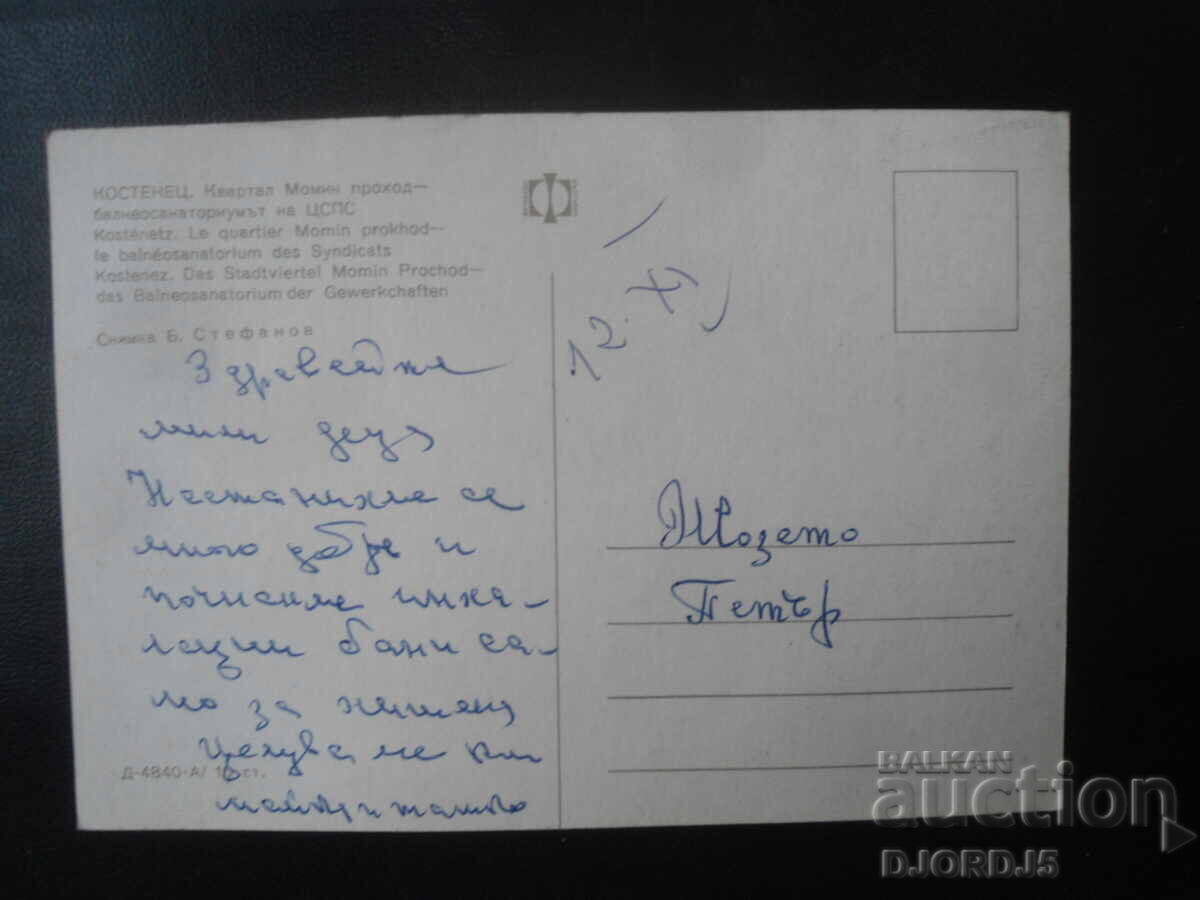 КОСТЕНЕЦ. Квартал Момин проход—
балнеосанаториумът на ЦСПС
Kostenetz. Le quartier Momin prokhod—
le balnéosanatorium des Syndicats
Kostenez. Das Stadtviertel Momin Prochod—
das Balneosanatorium der Gewerkchaften
Снимка Б. Стефанов
Здравейте
мили деца
Настанихме се
много добре и
почнахме инха-
лации бани са-
мо за
Целуваме ви
майка и татко
Д-4840-А/ ст.
12. XI
Мозето
Петър
BALKAN
auction
DJORDJ5